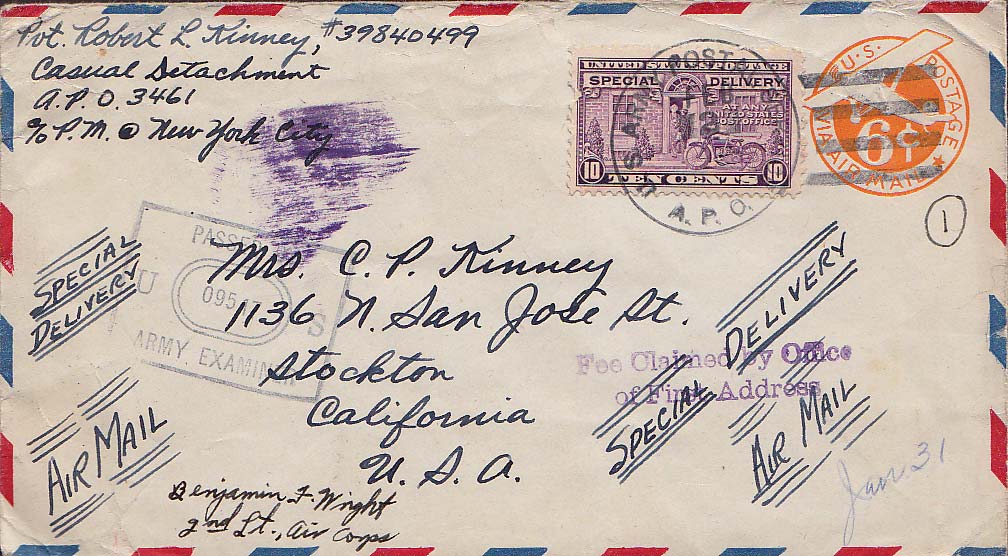 Pvt. Robert L. Kinney, #39840499
Casual Detachment
A.P.O. 3461
c/o P.M. @ New York City
UNITED STATES
SPECIAL DELIVERY
AT ANY
UNITED STATES
POST OFFICE
10 10
TEN CENTS
A.P.O.
U.S. POSTAGE
6¢
VIA AIR MAIL
1
SPECIAL
DELIVERY
PASSED
U S
ARMY EXAMINER
Mrs. C. P. Kinney
1136 N. San Jose St.
Stockton
California
U. S. A.
Fee Claimed by Office
of First Address
SPECIAL DELIVERY
AIR MAIL
AIR MAIL
Jan. 31
Benjamin F. Wright
2nd Lt., Air Corps